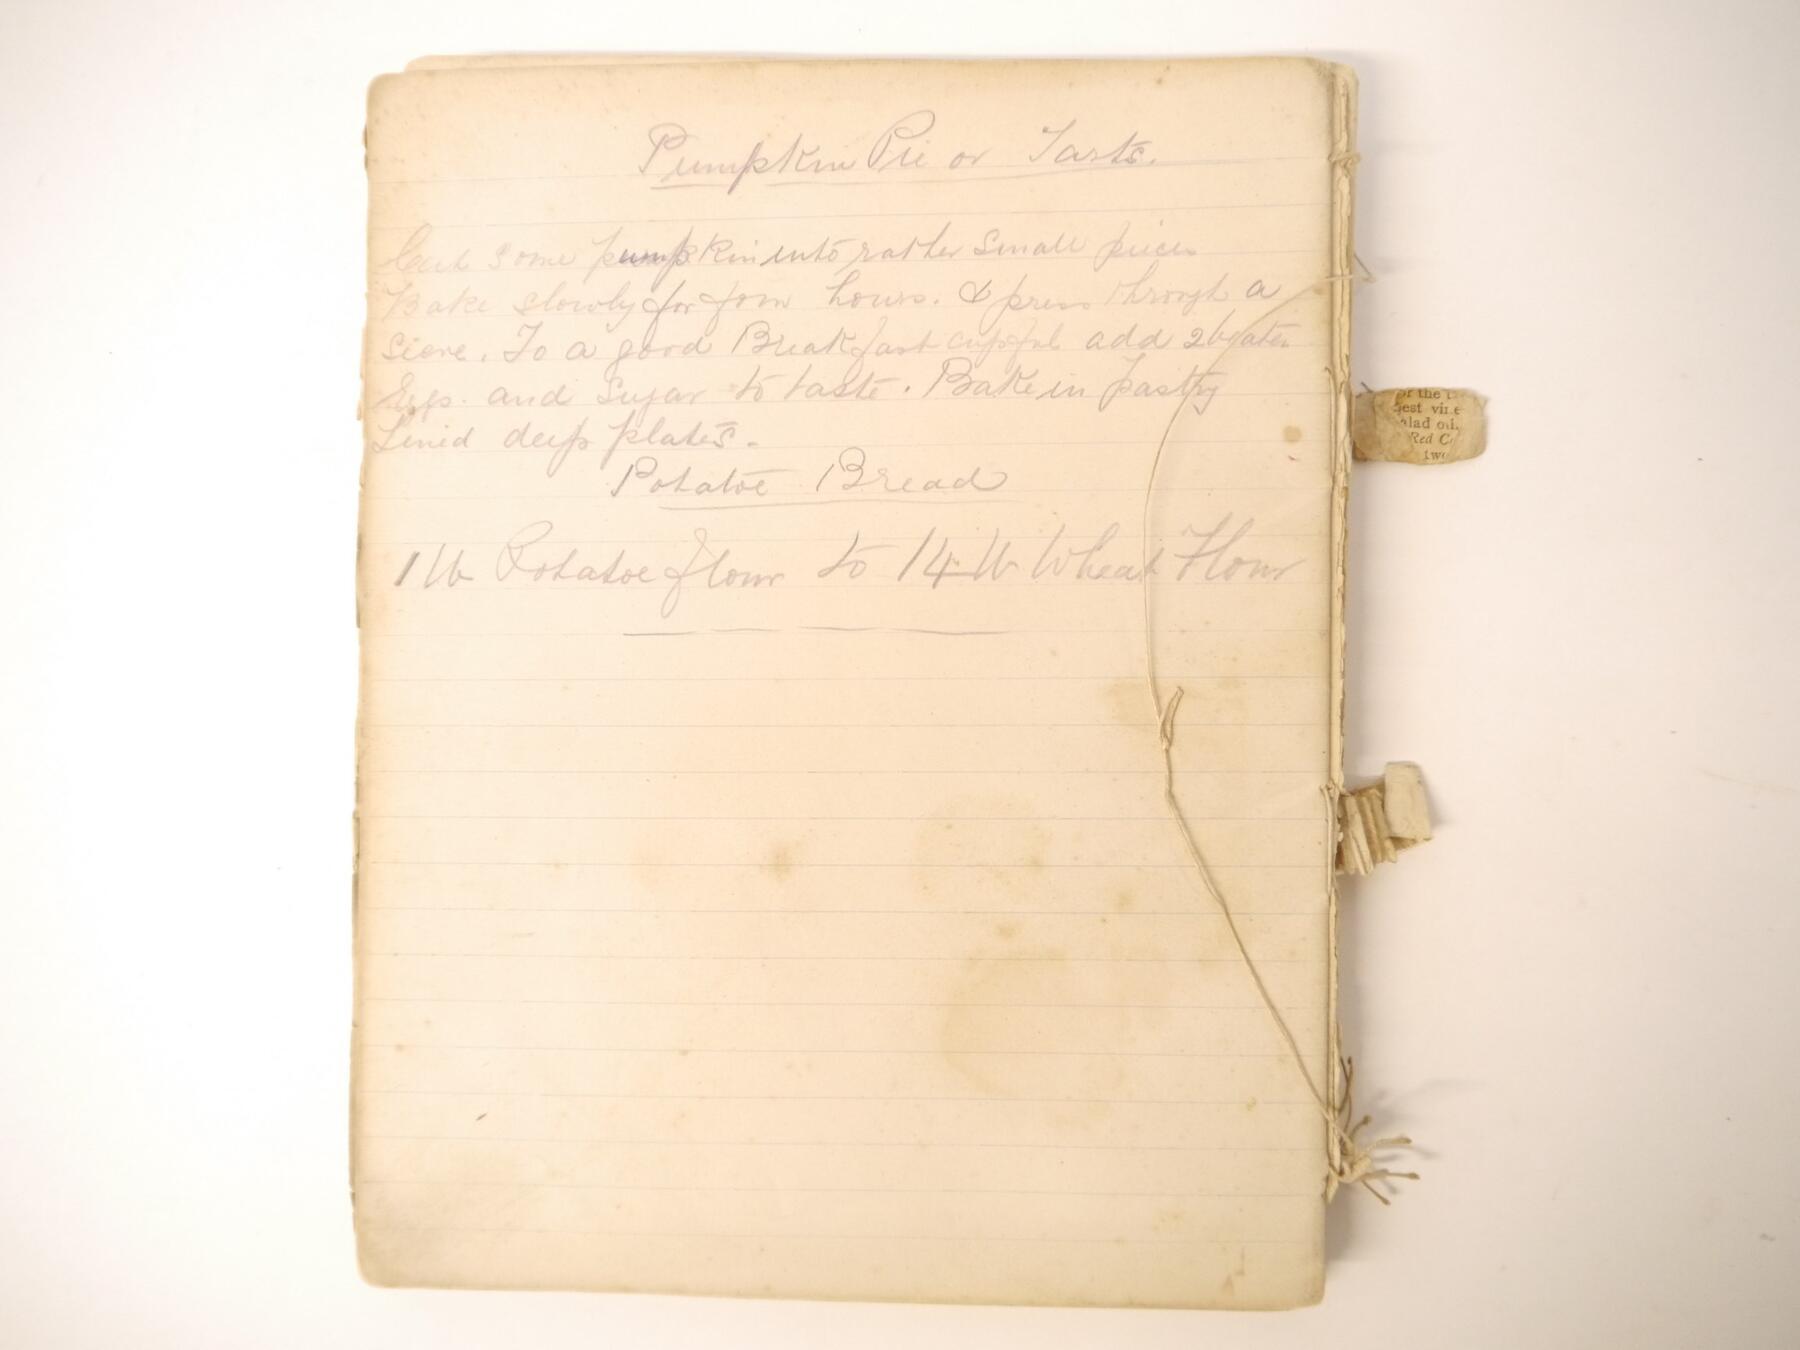 Pumpkin Pie or Tarts.
Cut some pumpkin into rather small pieces
Bake slowly for four hours. & press through a
sieve. To a good Breakfast cupful add 2 beaten
Eggs. and sugar to taste. Bake in pastry
Lined deep plates.
Potatoe Bread
1 lb Potatoe flour to 14 lb Wheat Flour
of the
best
salad oil.
Red
two